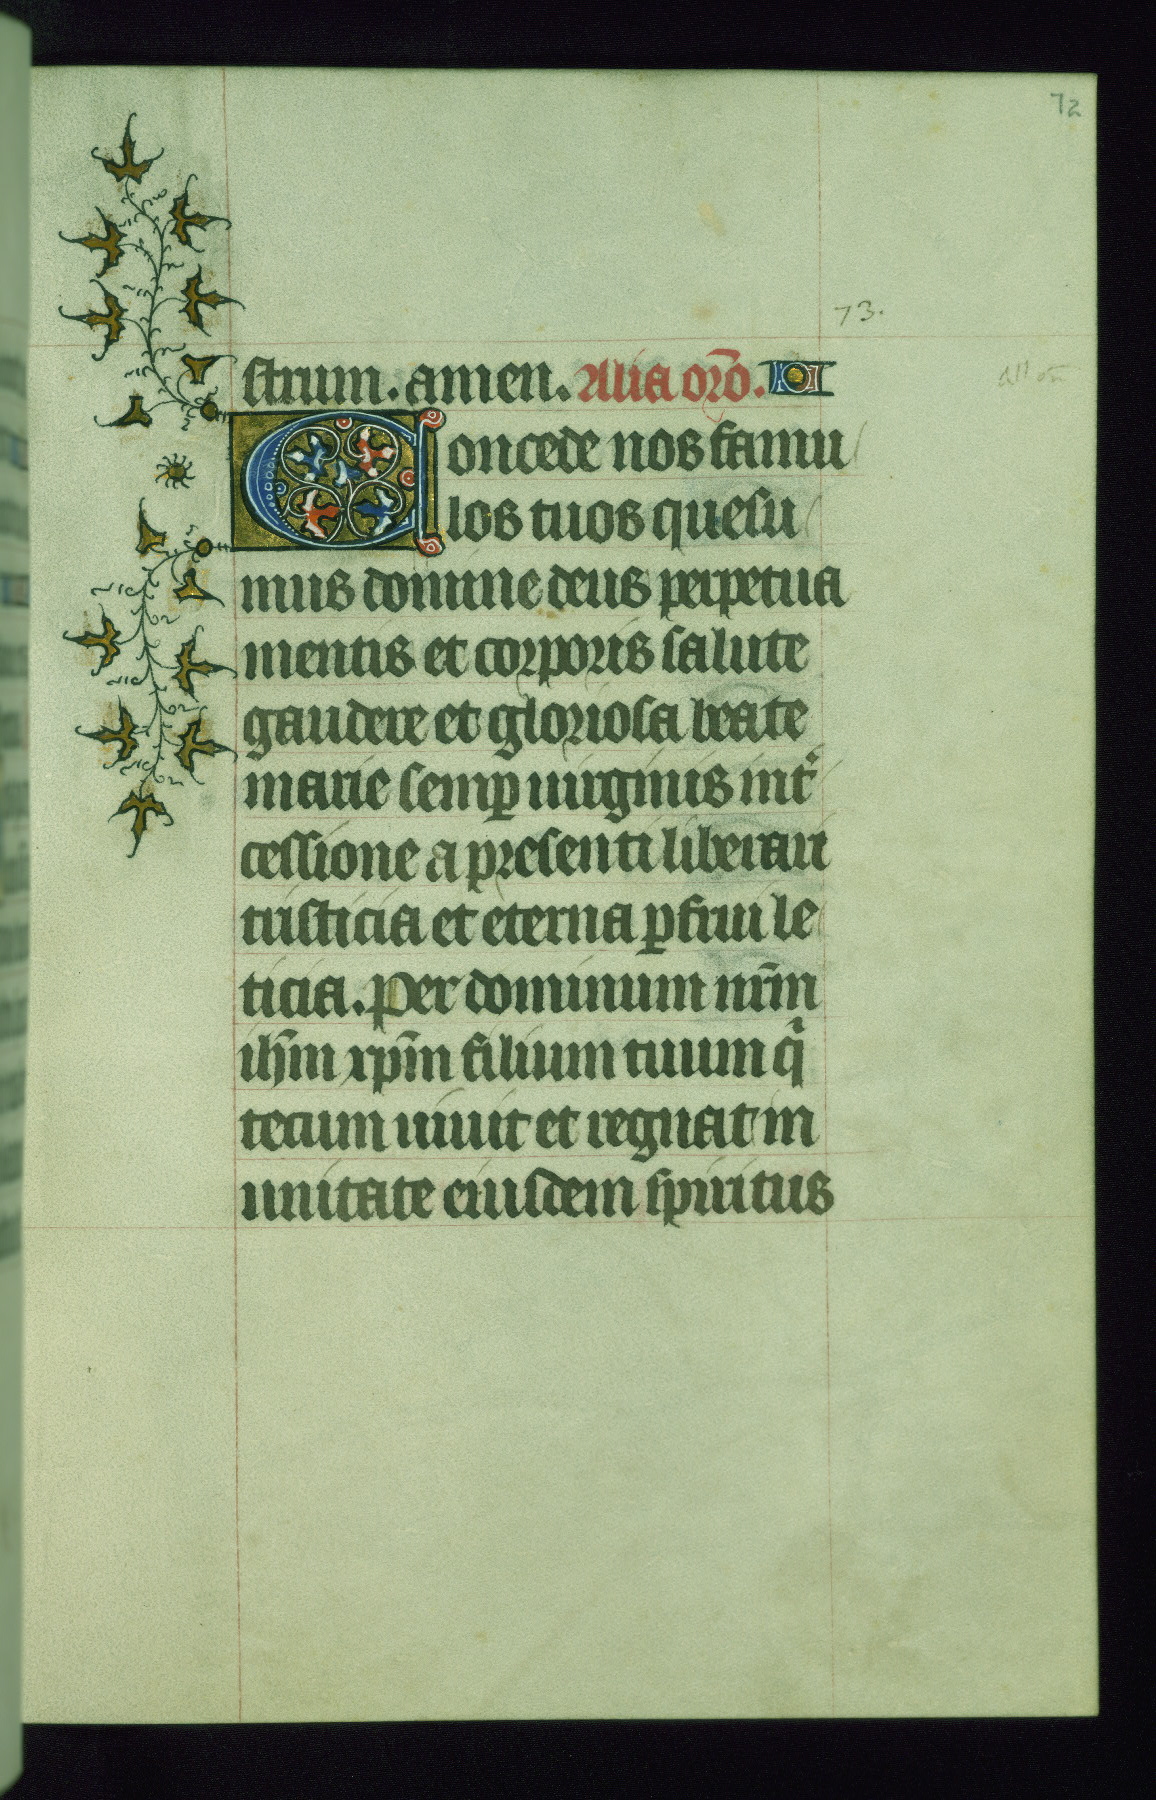 72
73.
strum. amen. Alia orō.
Concede nos famu
los tuos quesu
mus domine deus perpetua
mentis et corporis salute
gaudere et gloriosa beate
marie semꝑ uirginis int̉
cessione a presenti liberari
tristicia et eterna ꝑfrui le
ticia. Per dominum nr̄m
ih̄m xp̄m filium tuum qͥ
tecum uiuit et regnat in
unitate eiusdem spiritus